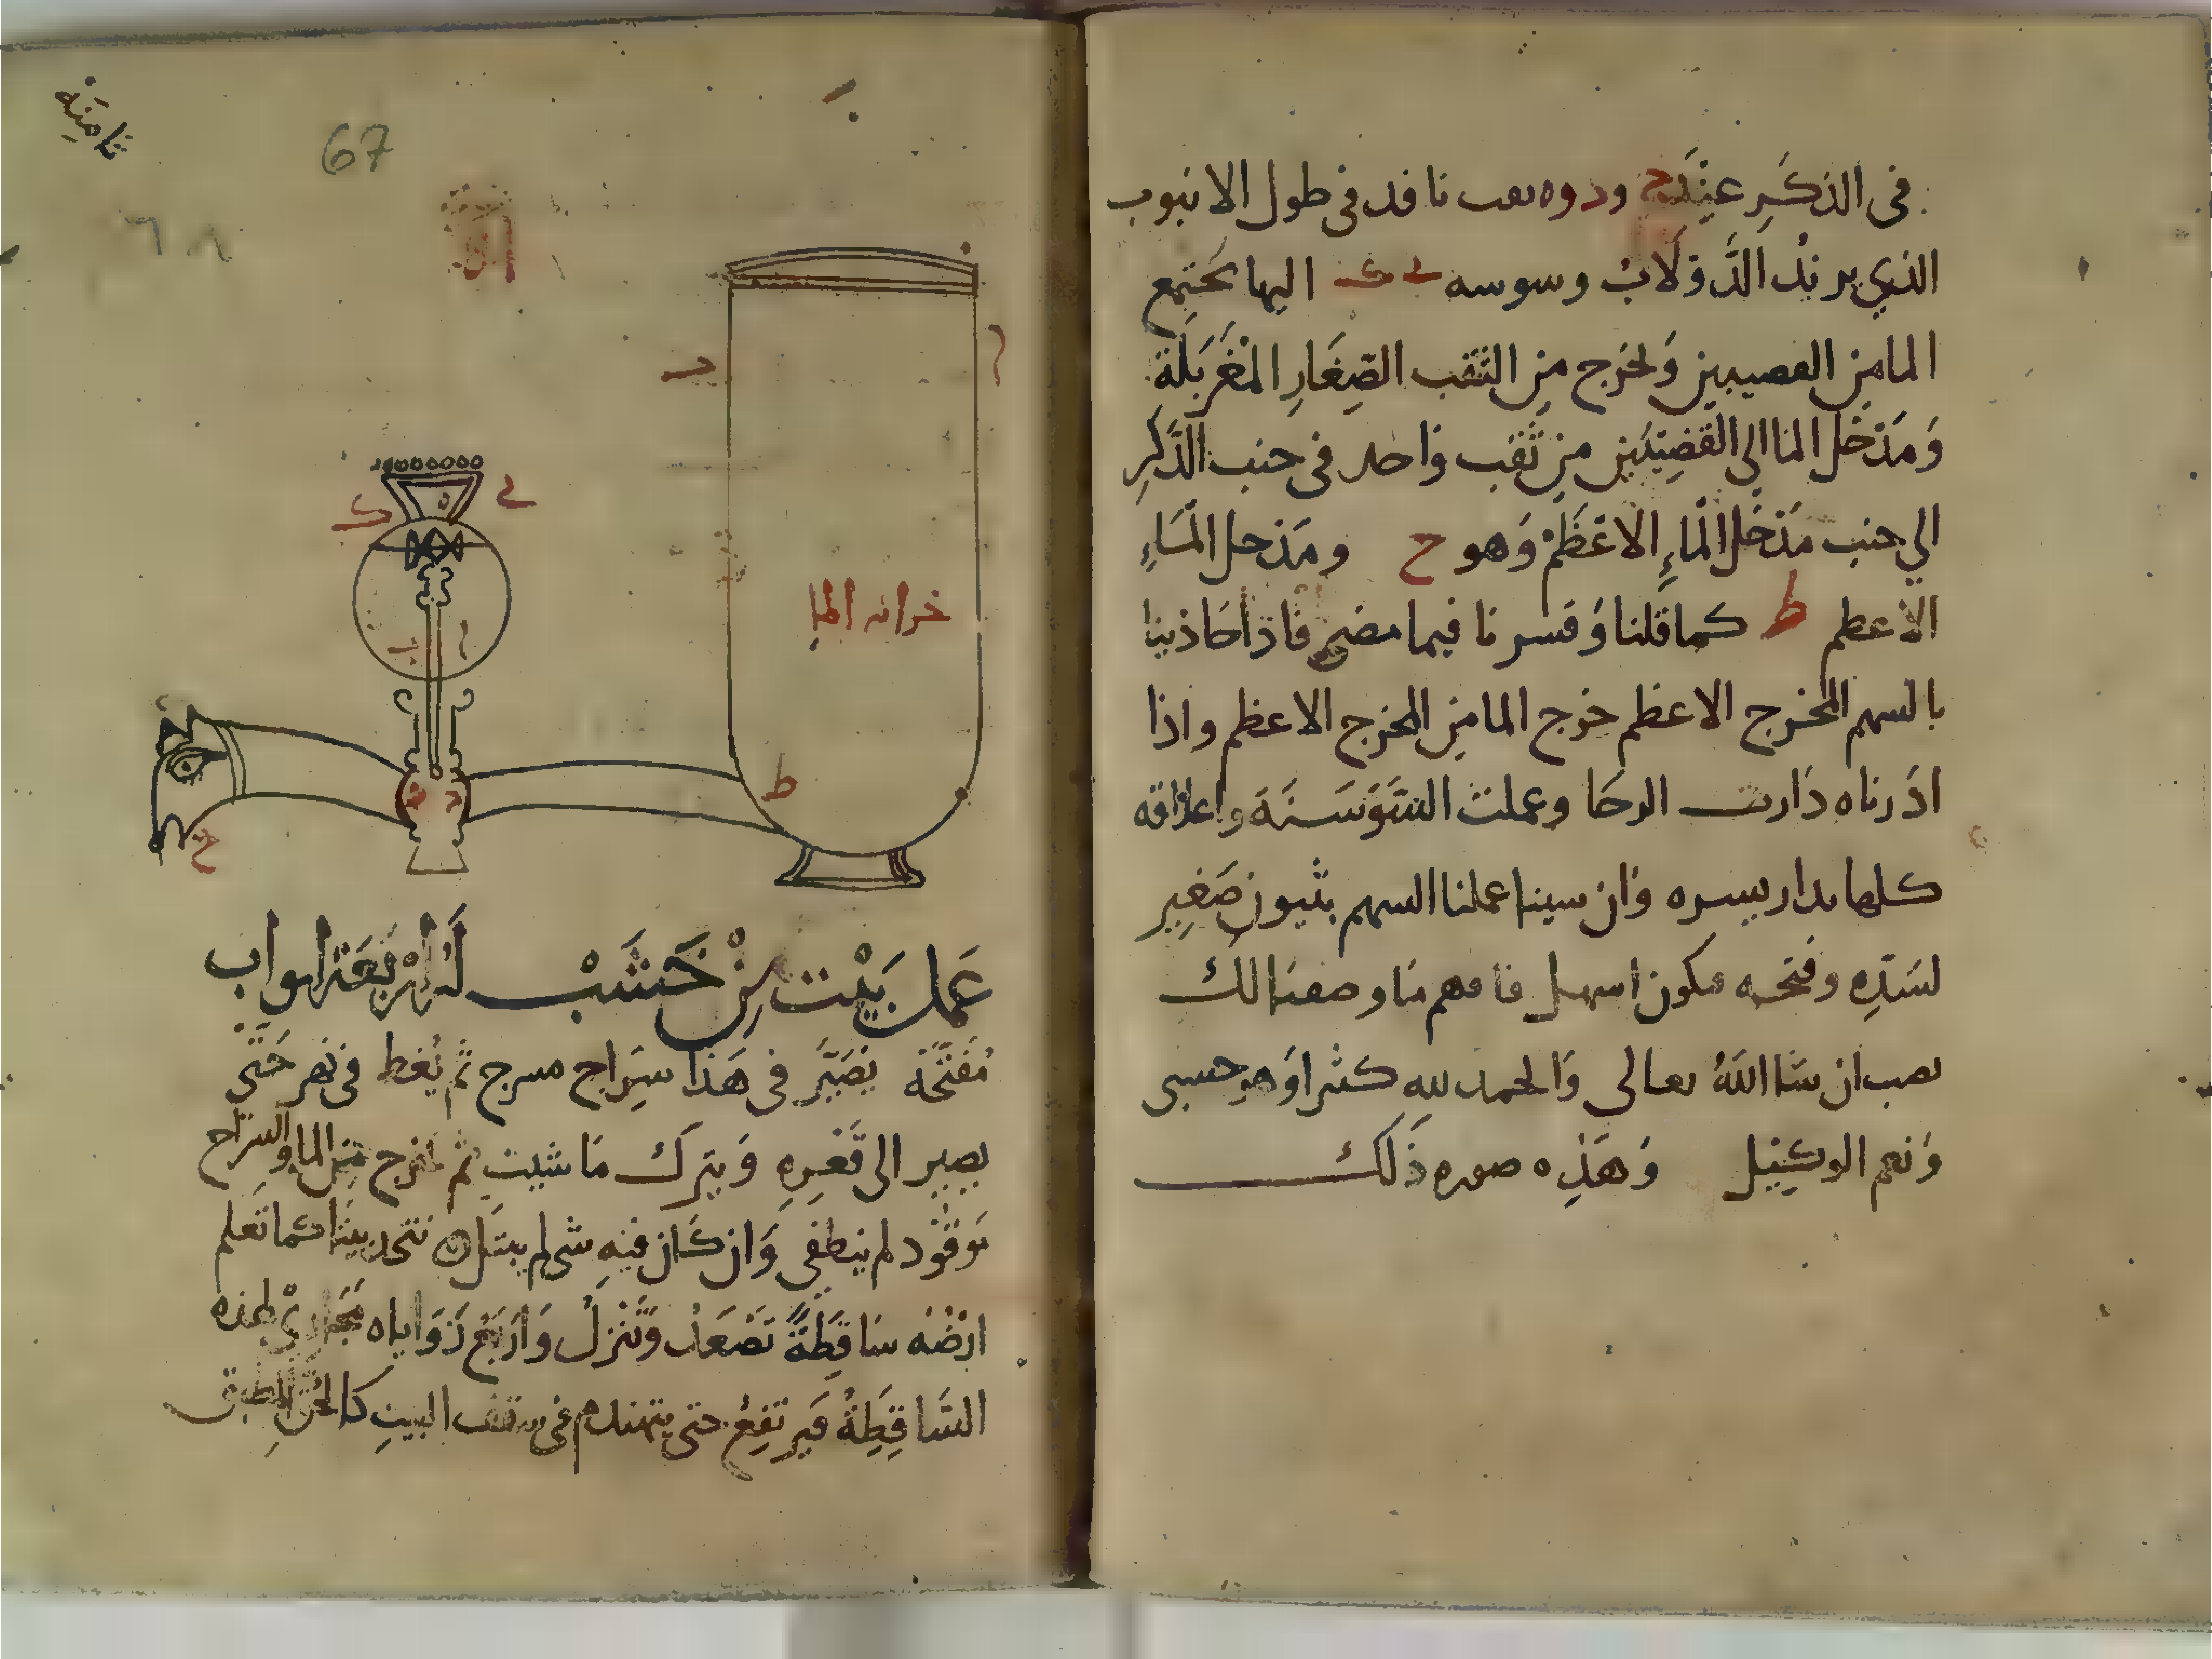 في الذكر عند ج ود وه ىعب نافد في طول الانبوب
الذي يريد الدولاب وسوسه ى ك اليها يجتمع
الما من القصيبين ويخرج من الثقب الصغار المغربلة
ومدخل الما الى القضيبين من ثقب واحد في جنب الذكر
الى جنب مدخل الماء الاعظم وهو ح ومدخل الماء
الاعظم ط كما قلنا وفسرنا فيما مضى فاذا حاذينا
بالسهم المخرج الاعظم خرج الما من المخرج الاعظم واذا
ادرناه دارت الرحا وعملت السوسنة واغلاقه
كلها بدار يسره وان سينا عملنا السهم بثيون صغير
لسده وفتحه فيكون اسهل فافهم ما وصفنا لك
نصب ان شا الله تعالى والحمد لله كثيرا وهو حسبي
ونعم الوكيل وهذه صوره ذلك
ثامنة
67
٦٨
د
ى
ك
خزانه الما
ا
ب
ط
ح
عمل بيت من خشب له اربعة ابواب
مفتحة نصير في هذا سراج مسرج ثم يغط في نهر حتى
يصير الى قعره ويترك ما شيت ثم اخرج من الما والسراج
يوقود لم ينطفي وان كان فيه شي لم يبتل نتخد بيتا كما تعلم
ارضه ساقطة تصعد وتنزل واربع زواياه مجاري لهذه
الساقطة فيرتفع حتى يتهندم في سقف البيت كالحق المطبق